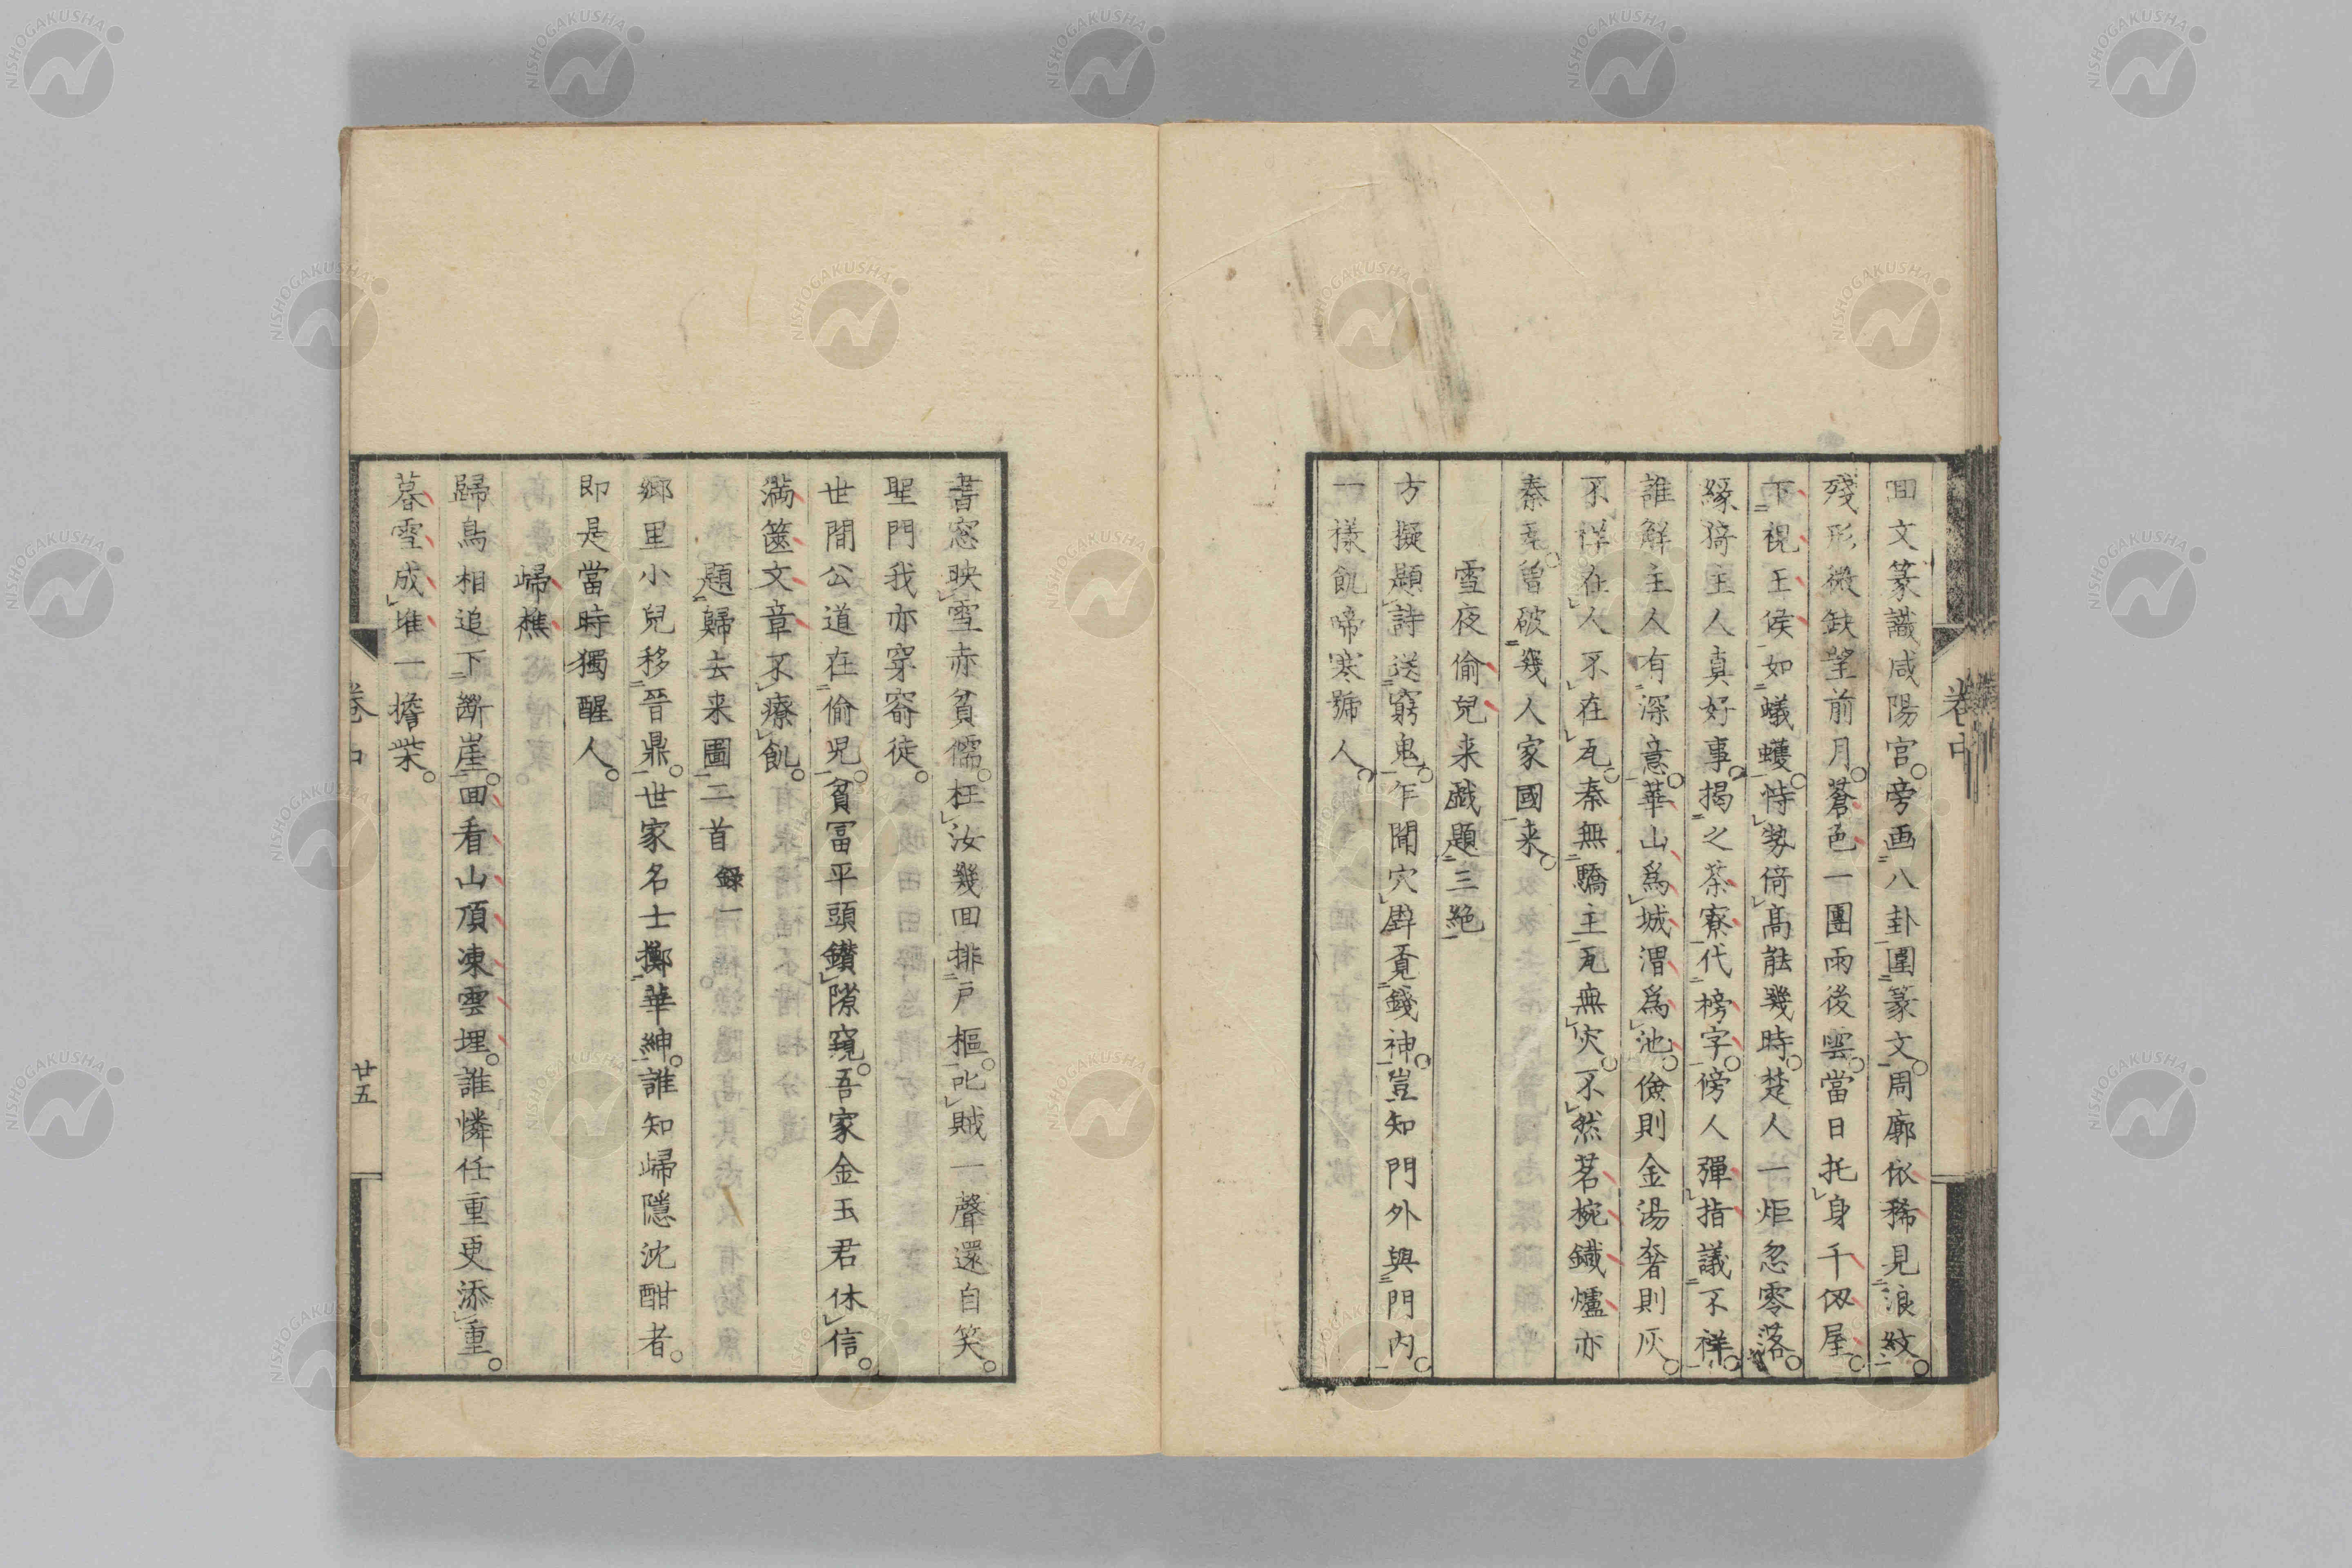 回文篆識咸陽宮旁画八卦圍篆文周廓依稀見浪紋
殘形微缺望前月蒼色一團雨後雲當日托身千仭屋
下視王侯如蟻蠖恃勢倚髙能幾時楚人一炬忽零落
緣猗主人真好事揭之茶寮代榜字傍人彈指議不祥
誰解主人有深意華山為城渭為池儉則金湯奢則灰
不祥在人不在瓦秦無驕主瓦無灾不然茗椀鐵爐亦
秦瓦曾破幾人家國来
雪夜偷兒来戯題三絶
方擬題詩送窮鬼乍聞穴壁覓錢神豈知門外與門内
一樣飢啼寒號人
卷中
書窓映雪亦貧儒枉汝幾回排戸樞叱賊一聲還自笑
聖門我亦穿窬徒
世間公道在偷児貧冨平頭鑚隙窺吾家金玉君休信
満篋文章不療飢
題歸去来圖二首 録一
郷里小兒移晉鼎世家名士擲華紳誰知歸隠沈酣者
即是當時獨醒人
歸樵
歸鳥相追下斷崖回看山頂凍雲埋誰憐任重更添重
暮雪成堆一擔柴
卷中
廿五
NISHOGAKUSHA